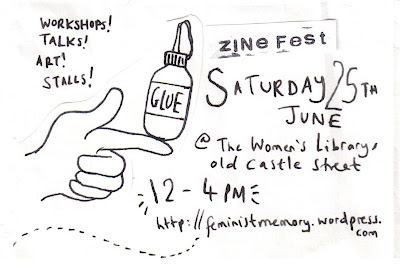 WORKSHOPS!
TALKS!
ART!
STALLS!
GLUE
ZINe FesT
SATURDAY 25TH
JUNE
@ The Women's Library,
old Castle Street
12 - 4 PM
http://feministmemory.wordpress.
com